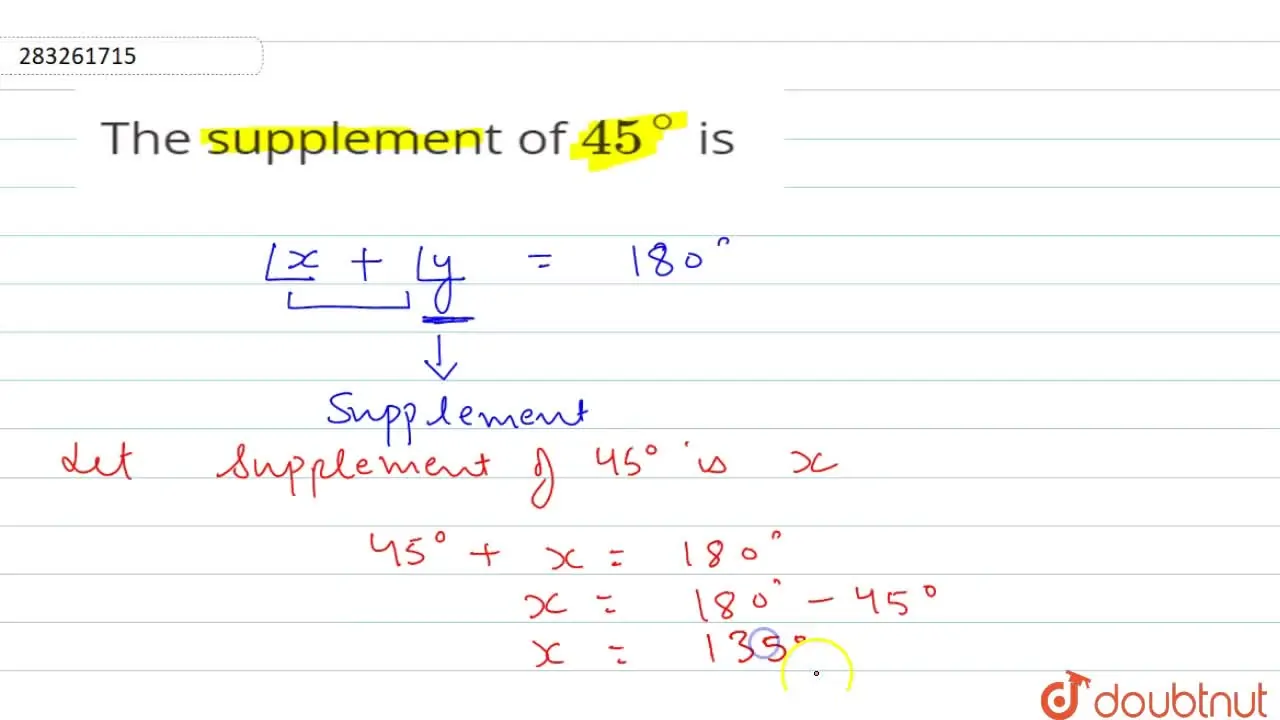 283261715
The supplement of 45° is
∠x + ∠y = 180°
Supplement
Let supplement of 45° is x
45° + x = 180°
x = 180° - 45°
x = 135°
doubtnut